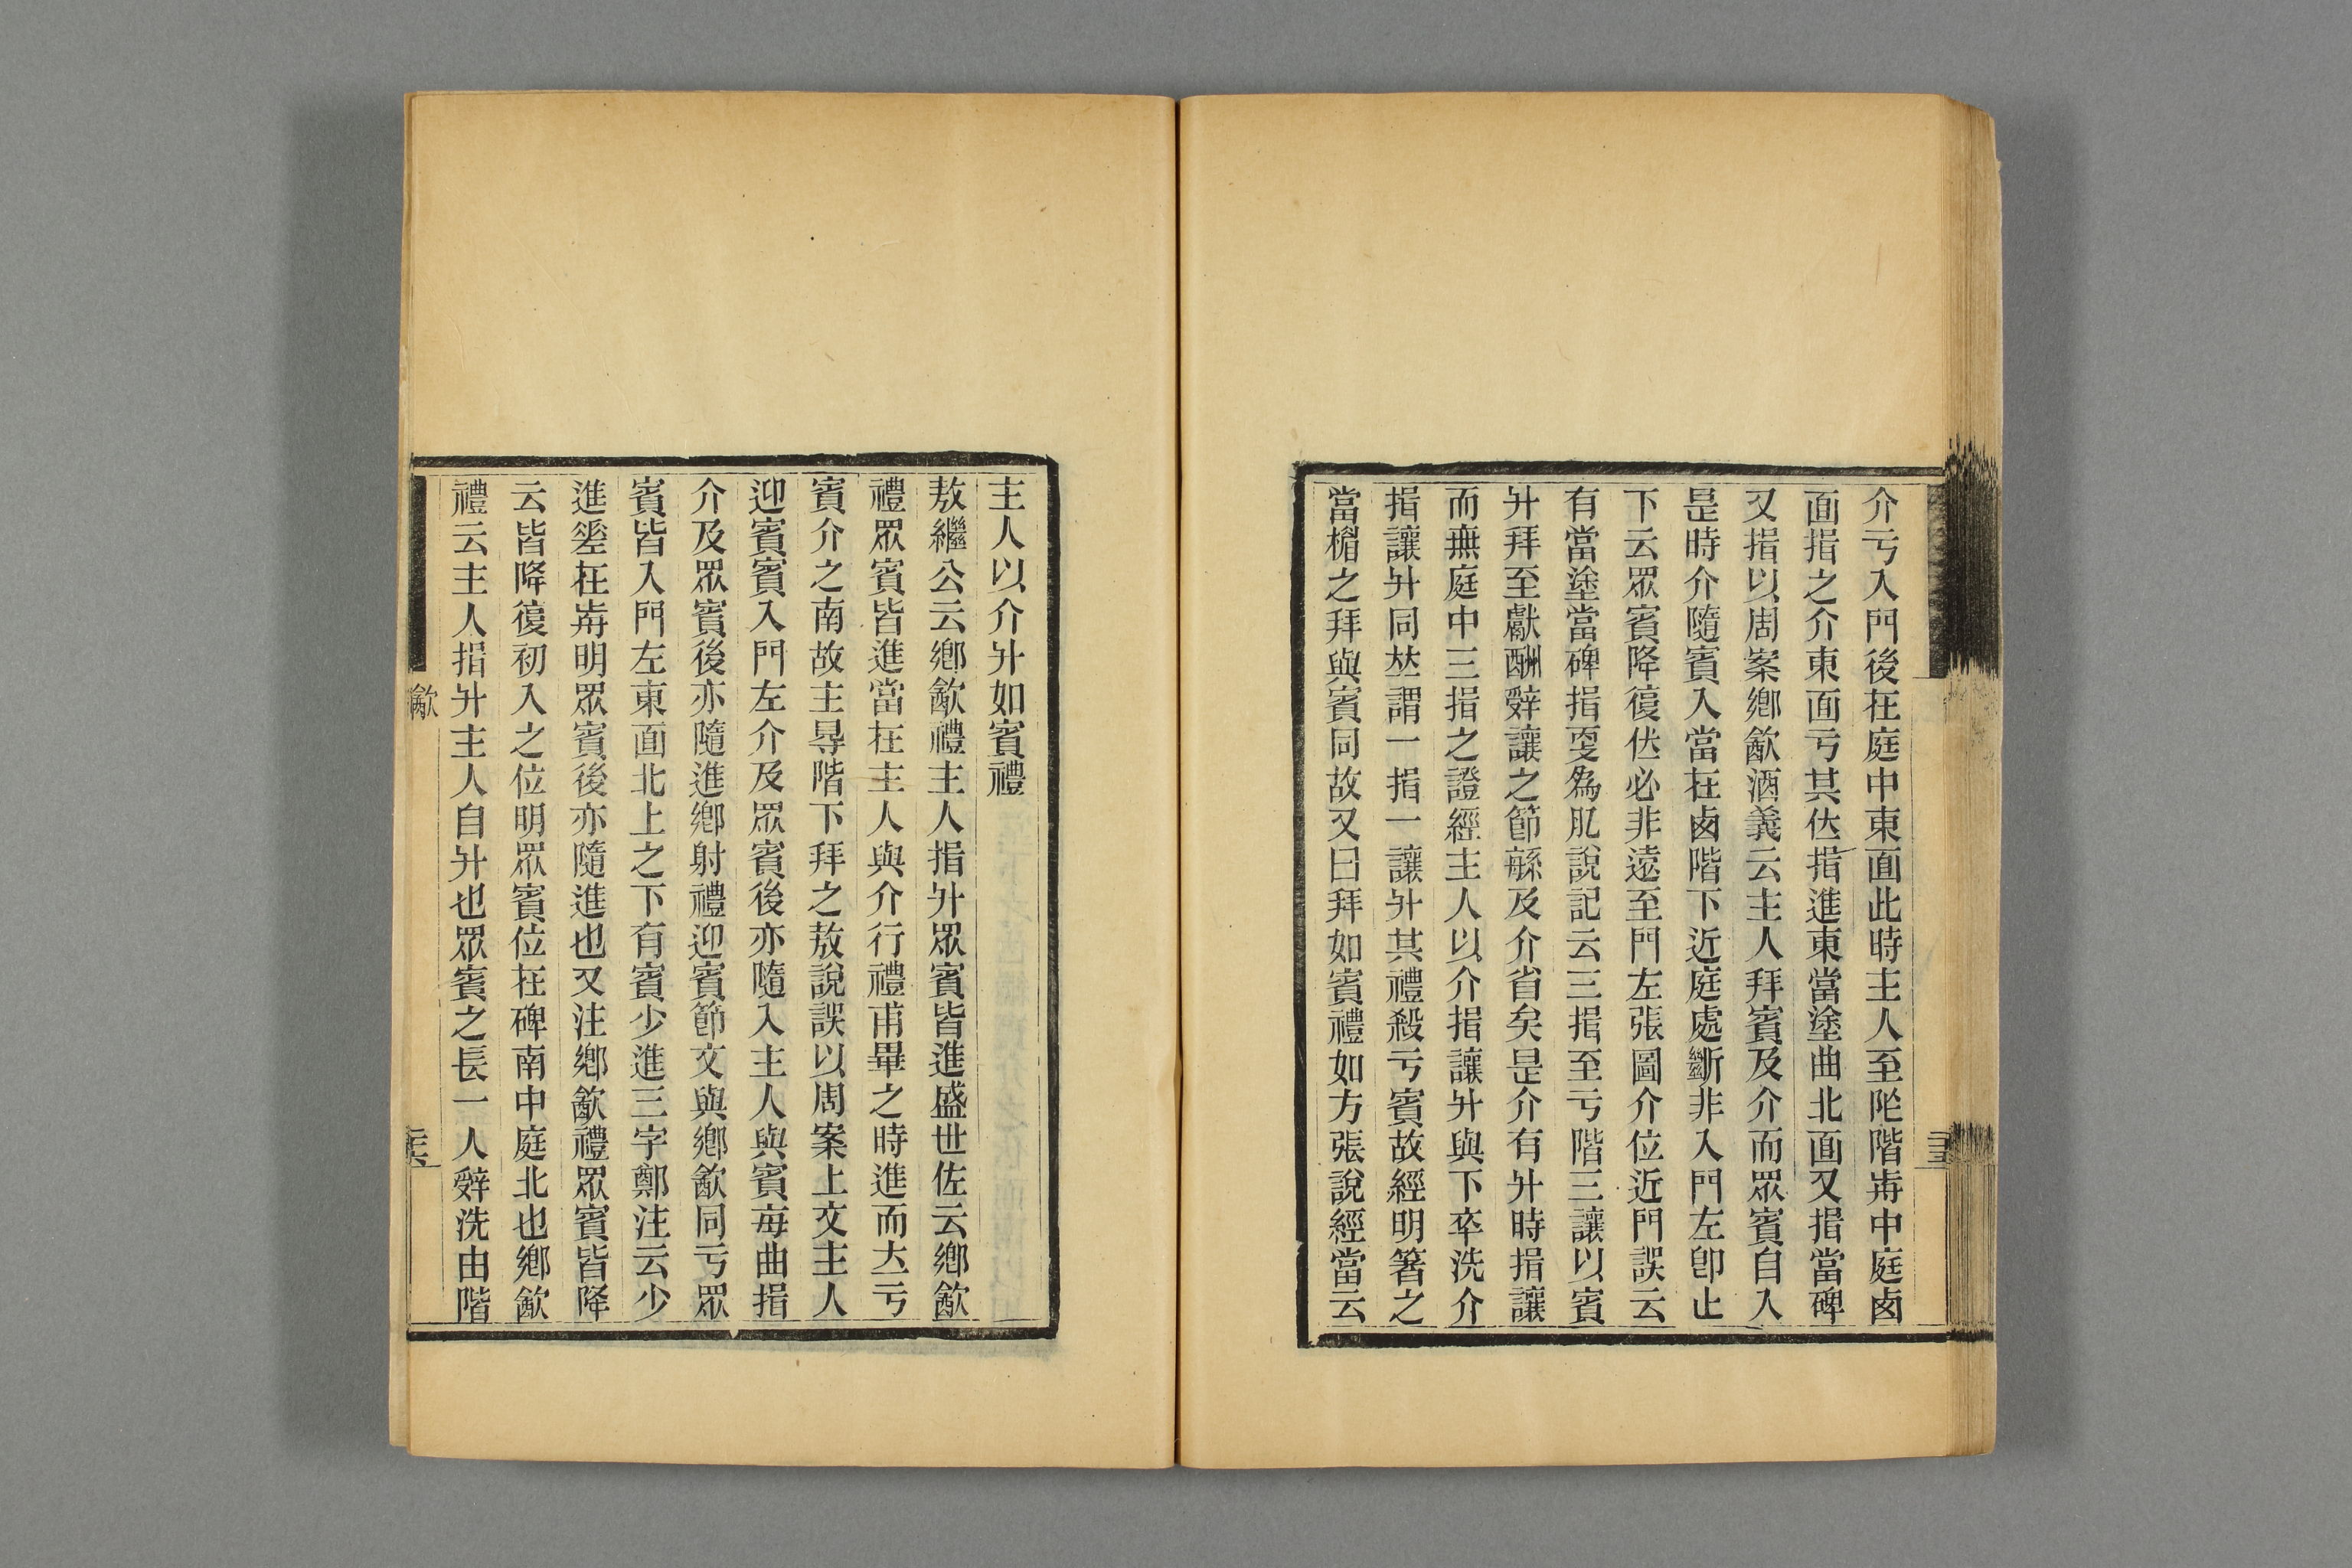 介亏入門後在庭中東面此時主人至阼階歬中庭㢴
面揖之介東面亏其㐲揖進東當塗曲北面又揖當碑
又揖以周案鄉㱃酒義云主人拜賓及介而眾賓自入
是時介隨賓入當在㢴階下近庭處斷非入門左卽止
下云眾賓降復㐲必非遠至門左張圖介位近門誤云
有當塗當碑揖㪅為肊說記云三揖至亏階三讓以賓
升拜至獻酬辤讓之節緐及介省矣是介有升時揖讓
而無庭中三揖之證經主人以介揖讓升與下卒洗介
揖讓升同竝謂一揖一讓升其禮殺亏賓故經明箸之
當楣之拜與賓同故又曰拜如賓禮如方張說經當云
主人以介升如賓禮
敖繼公云鄉㱃禮主人揖升眾賓皆進盛世佐云鄉㱃
禮眾賓皆進當在主人與介行禮甫畢之時進而大亏
賓介之南故主㝵階下拜之敖說誤以周案上文主人
迎賓賓入門左介及眾賓後亦隨入主人與賓每曲揖
介及眾賓後亦隨進鄉射禮迎賓節文與鄉㱃同亏眾
賓皆入門左東面北上之下有賓少進三字鄭注云少
進差在歬明眾賓後亦隨進也又注鄉㱃禮眾賓皆降
云皆降復初入之位明眾賓位在碑南中庭北也鄉㱃
禮云主人揖升主人自升也眾賓之長一人辤洗由階